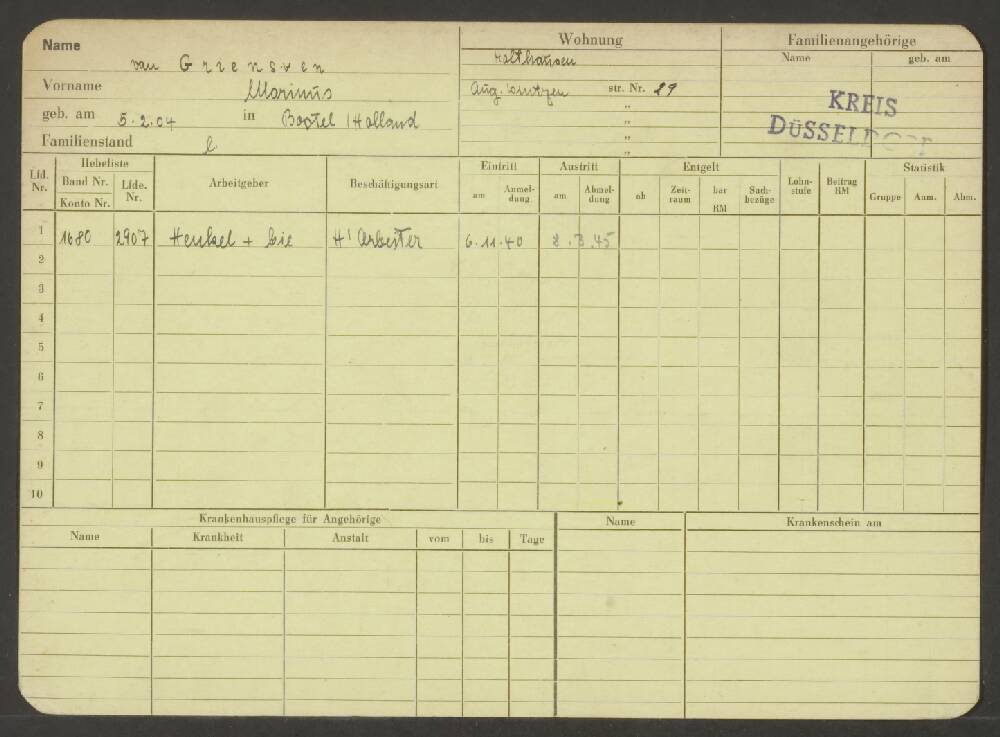 Name
van Griensven
Vorname
Marinus
geb. am 5.2.04 in Boxtel / Holland
Familienstand l
Wohnung
Holthausen
str. Nr. 29
"
"
"
"
Familienangehörige
Name geb. am
KREIS
DÜSSELDORF
Lfd. Nr. Hebeliste Arbeitgeber Beschäftigungsart Eintritt Austritt Entgelt Lohn-stufe Beitrag RM Statistik
Band Nr. Lfde. Nr. am Anmel-dung am Abmel-dung ab Zeit-raum bar RM Sach-bezüge Gruppe Anm. Abm.
Konto Nr.
1 1680 2907 Henkel + Cie H'Arbeiter 6.11.40 2.3.45
2
3
4
5
6
7
8
9
10
Krankenhauspflege für Angehörige
Name Krankheit Anstalt vom bis Tage
Name Krankenschein am